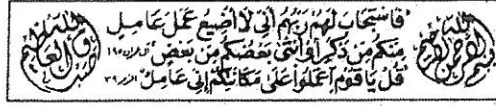 بسم الله الرحمن الرحيم
فاستجاب لهم ربهم أني لا أضيع عمل عامل
منكم من ذكر أو أنثى بعضكم من بعض آل عمران ١٩٥
قل يا قوم اعملوا على مكانتكم إني عامل الزمر ٣٩
صدق الله العظيم